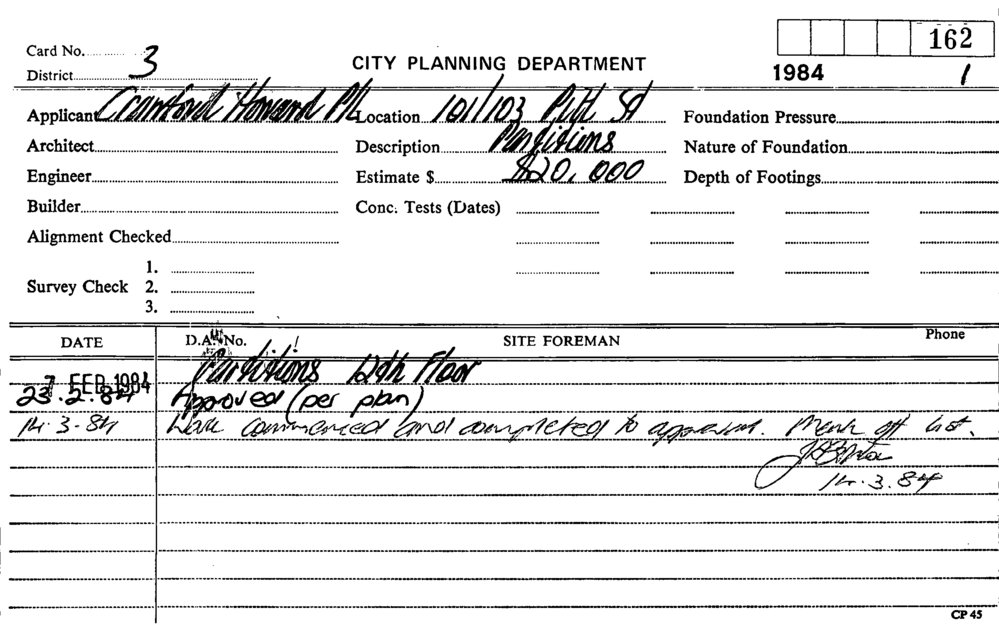 162
Card No. 3
CITY PLANNING DEPARTMENT
District
1984 1
Applicant Crawford Howard P/L Location 101/103 Pitt St Foundation Pressure
Architect Description Partitions Nature of Foundation
Engineer Estimate $ $20,000 Depth of Footings
Builder Conc. Tests (Dates)
Alignment Checked
1.
Survey Check 2.
3.
DATE D.A. No. SITE FOREMAN Phone
7 FEB 1984 Partitions 12th Floor
23.2.84 Approved (per plan)
14.3.84 Work commenced and completed to approval. Mark off list.
14.3.84
CP 45